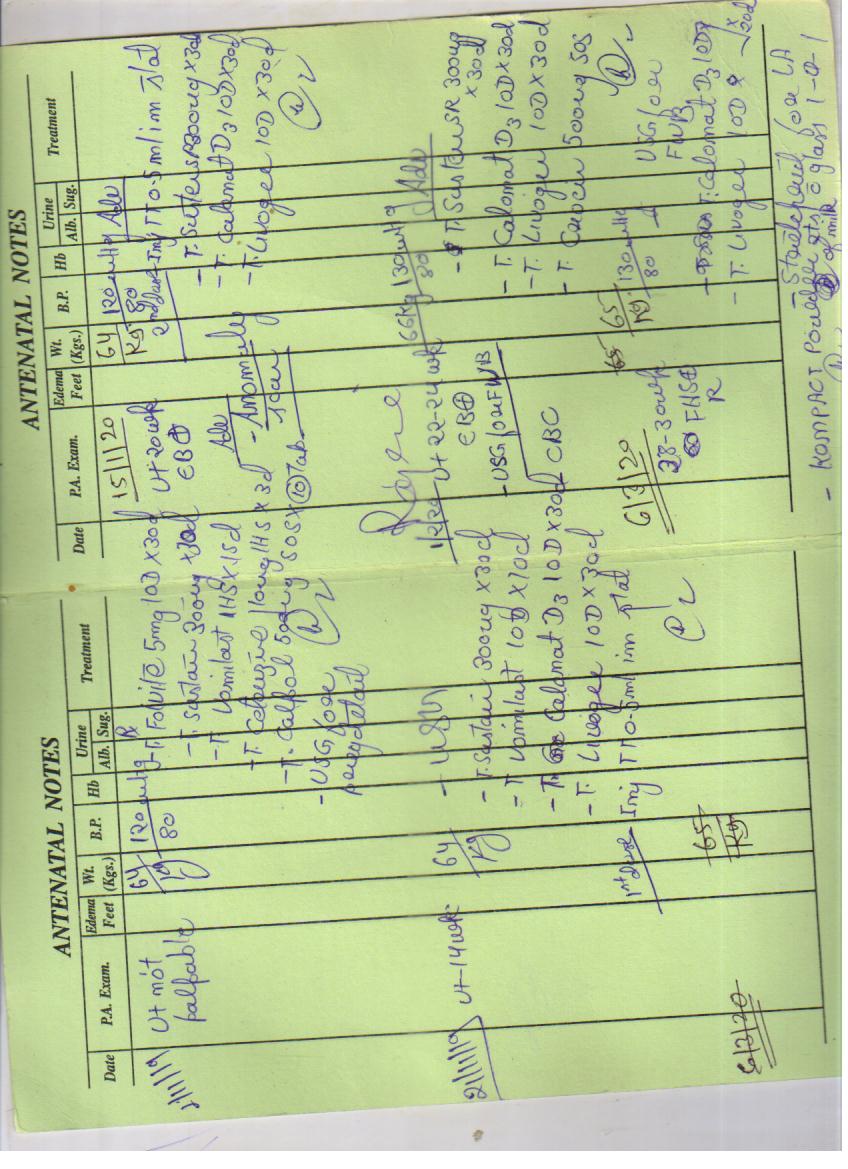 ANTENATAL NOTES
Date P.A. Exam. Edema Feet Wt. (Kgs.) B.P. Hb Urine Alb. Sug. Treatment
Ut not 64 120 mmHg
palpable Kg 80
- T. Folvite 5mg 10D x 30d
- T. Sustain 300mg x 30d
- T. Vomilast 1HS x 15d
10mg 1HS x 3d
- T. Calpol 500mg SOS x 10 Tab
- USG for
21/11/19 Ut-14wk 64 - USG
Kg
- T. Sustain 300mg x 30d
- T. Vomilast 10D x 10d
- T. Calamat D3 10D x 30d
- T. Livogen 10D x 30d
1st dose Inj TT 0.5ml im stat
65
Kg
6/3/20
ANTENATAL NOTES
Date P.A. Exam. Edema Feet Wt. (Kgs.) B.P. Hb Urine Alb. Sug. Treatment
15/1/20 64 120 mmHg Adv
Kg 80
Ut 20wk 2nd dose Inj TT 0.5ml im stat
EB⊕ - T. Susten SR 300mg x 30d
Adv - T. Calamat D3 10D x 30d
- Anomaly - T. Livogen 10D x 30d
scan
1/2/20 Ut 22-24wk 66Kg 130mmHg Adv
80
EB⊕ - T. Susten SR 300mg
x 30d
- USG for FWB - T. Calamat D3 10D x 30d
CBC - T. Livogen 10D x 30d
- T. Crocin 500mg SOS
6/3/20 65 65 130mmHg USG for
Kg 80 FWB
28-30wk
FHS⊕
R
- T. Calamat D3 10D
- T. Livogen 10D x 30d
- Sachet for LA
- KOMPACT Powder glass 1-0-1
of milk